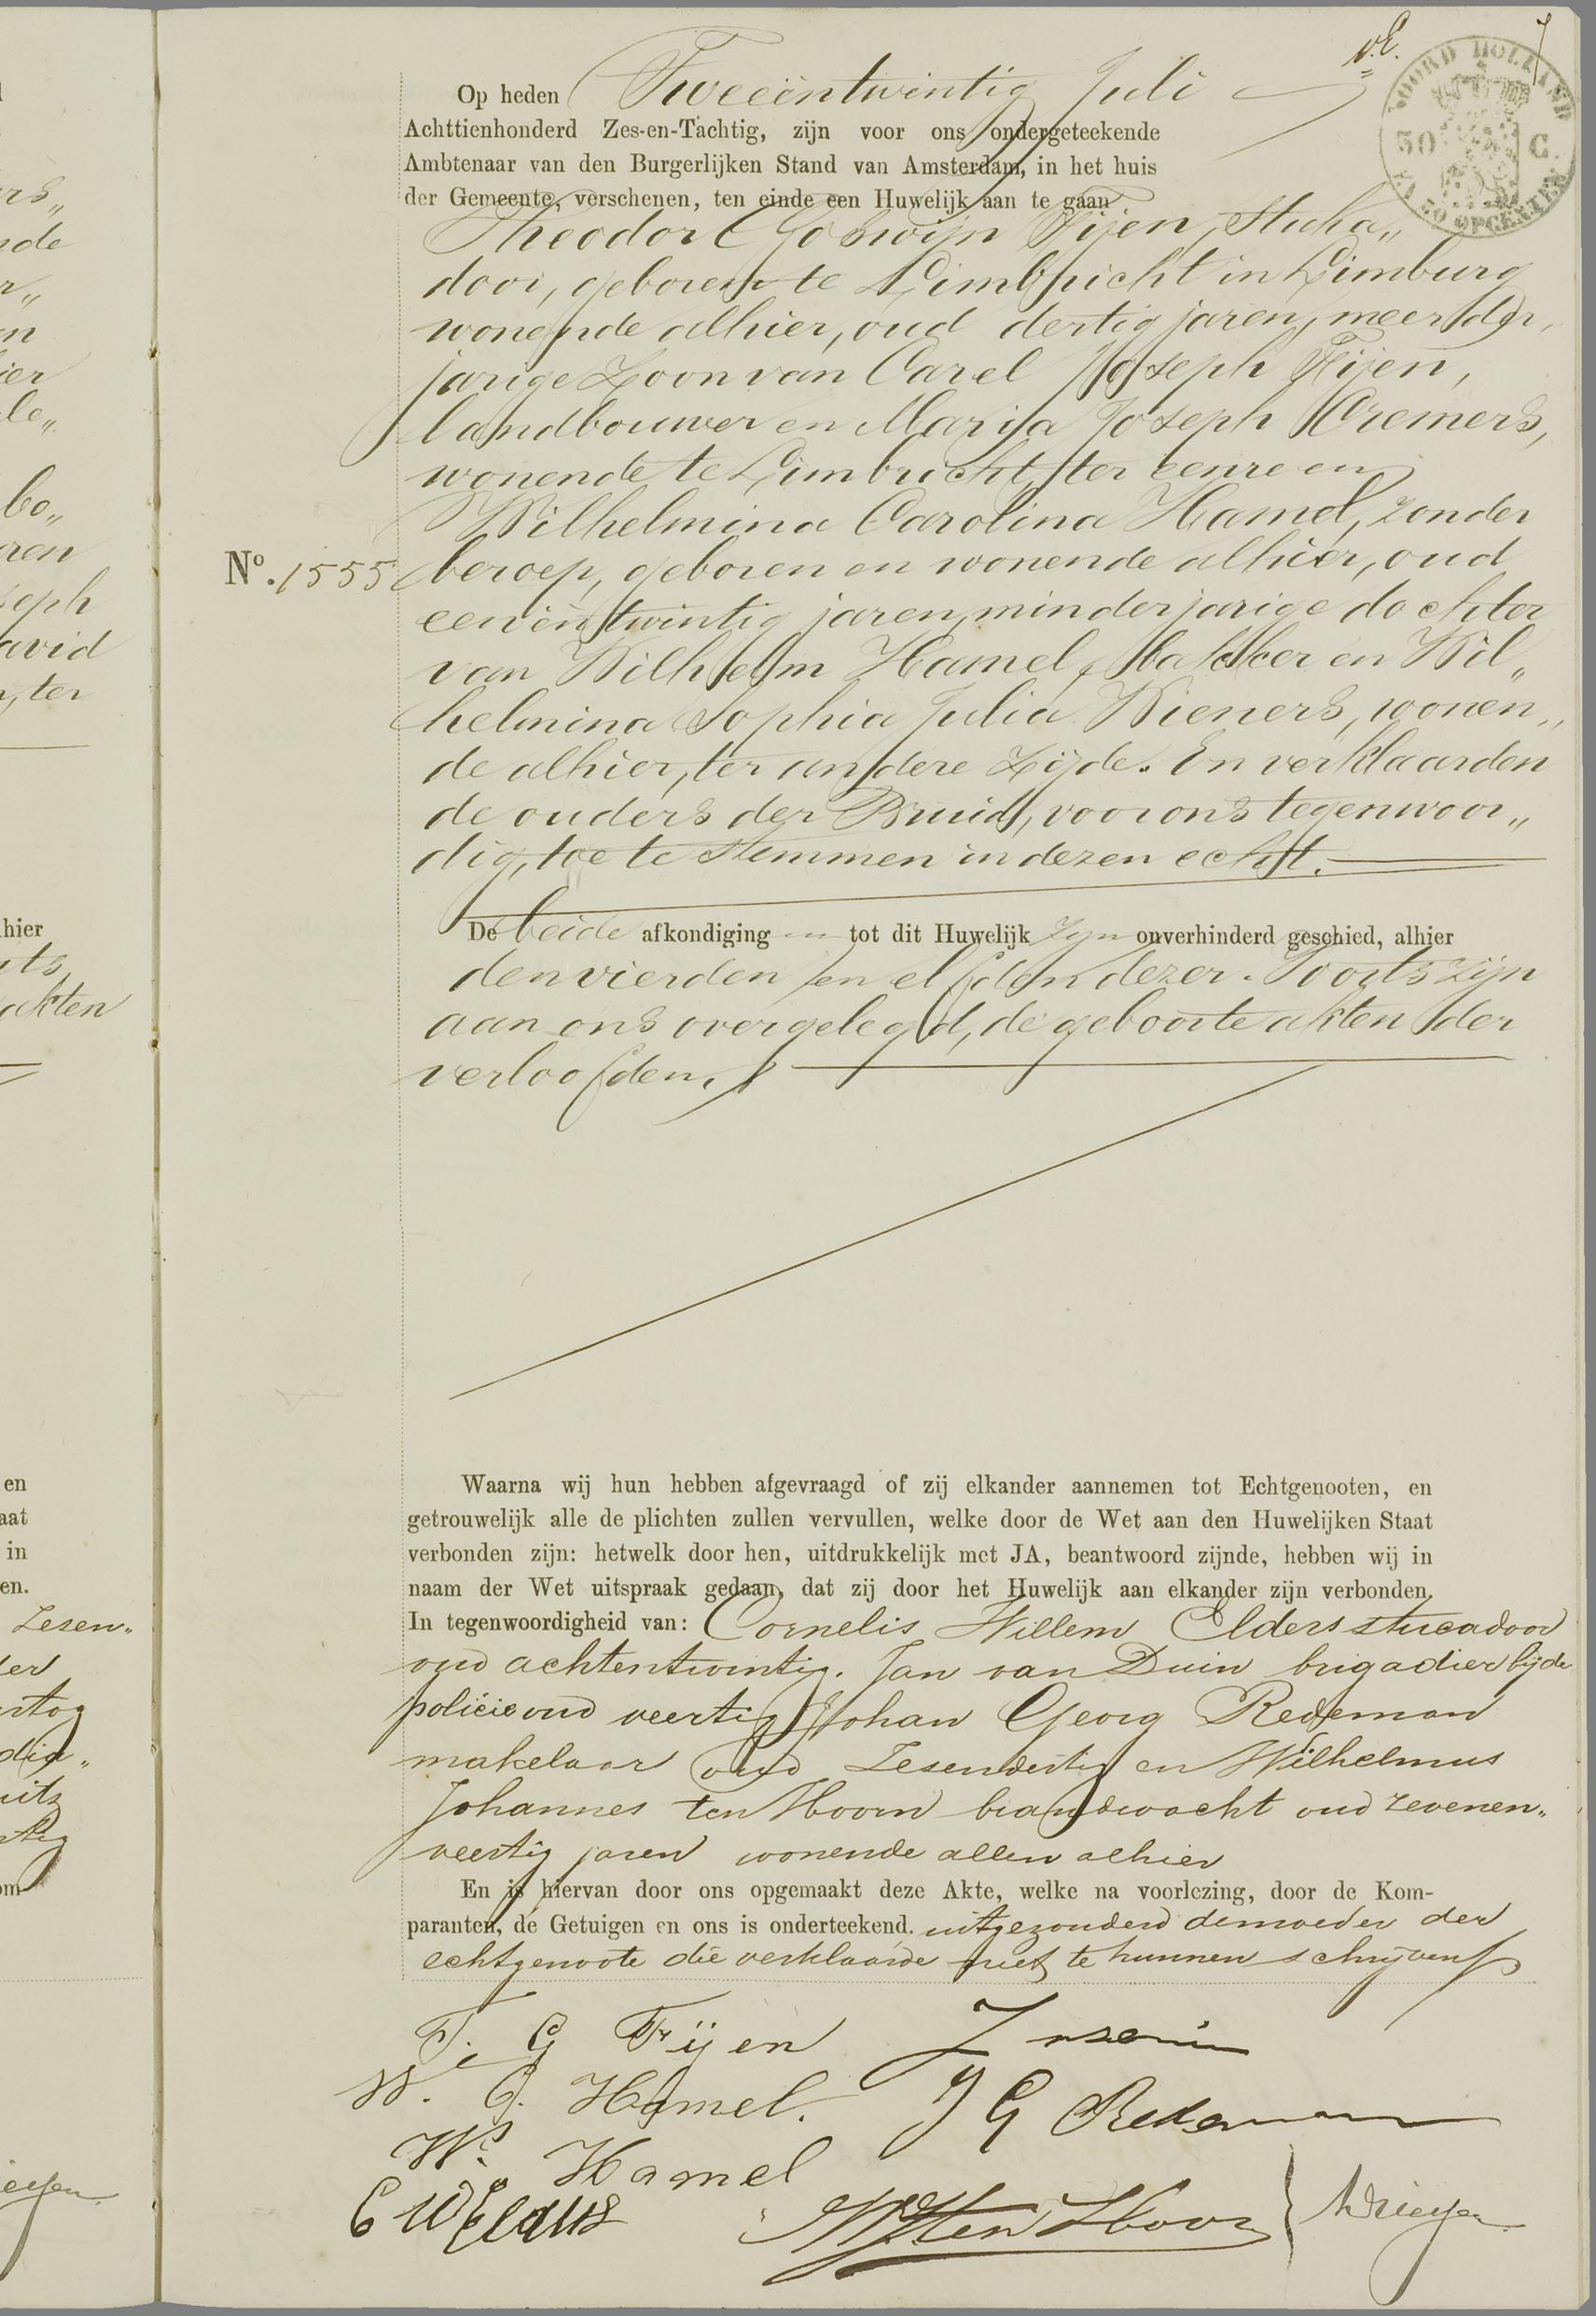 v.E.
7
NOORD HOLLAND
50 C.
38 OPCENTEN
Op heden Tweeëntwintig Juli
Achttienhonderd Zes-en-Tachtig, zijn voor ons ondergeteekende
Ambtenaar van den Burgerlijken Stand van Amsterdam, in het huis
der Gemeente, verschenen, ten einde een Huwelijk aan te gaan
Theodor Goswijn Fijen, Stuka„
door, geboren te Limbricht in Limburg
wonende alhier, oud dertig jaren, meerder„
jarige Zoon van Carel Joseph Fijen,
landbouwer en Maria Joseph Cremers,
wonende te Limbricht, ter eenre en
Wilhelmina Carolina Hamel, zonder
No. 1555 beroep, geboren en wonende alhier, oud
eenëntwintig jaren, minderjarige dochter
van Wilhelm Hamel, bakker en Wil„
helmina Sophia Julia Wieners, wonen„
de alhier, ter andere Zijde. En verklaarden
de ouders der Bruid, voor ons tegenwoor„
dig, toe te stemmen in dezen echt.
De beide afkondiging en tot dit Huwelijk zijn onverhinderd geschied, alhier
den vierden en elfden dezer. Voorts zijn
aan ons overgelegd, de geboorte akten der
verloofden.
Waarna wij hun hebben afgevraagd of zij elkander aannemen tot Echtgenooten, en
getrouwelijk alle de plichten zullen vervullen, welke door de Wet aan den Huwelijken Staat
verbonden zijn: hetwelk door hen, uitdrukkelijk met JA, beantwoord zijnde, hebben wij in
naam der Wet uitspraak gedaan, dat zij door het Huwelijk aan elkander zijn verbonden.
In tegenwoordigheid van: Cornelis Willem Elders stucadoor
oud achtentwintig. Jan van Duin brigadier bij de
policie oud veertig Johan Georg Redeman
makelaar oud Zesendertig en Wilhelmus
Johannes ten Hoorn brandwacht oud zevenen„
veertig jaren wonende allen alhier
En is hiervan door ons opgemaakt deze Akte, welke na voorlezing, door de Kom-
paranten, de Getuigen en ons is onderteekend. uitgezonderd de moeder der
echtgenoote die verklaarde niet te kunnen schrijven
T. G Fijen
W. C. Hamel.
J G Redeman
W. Hamel
C W Elders
WJ ten Hoorn